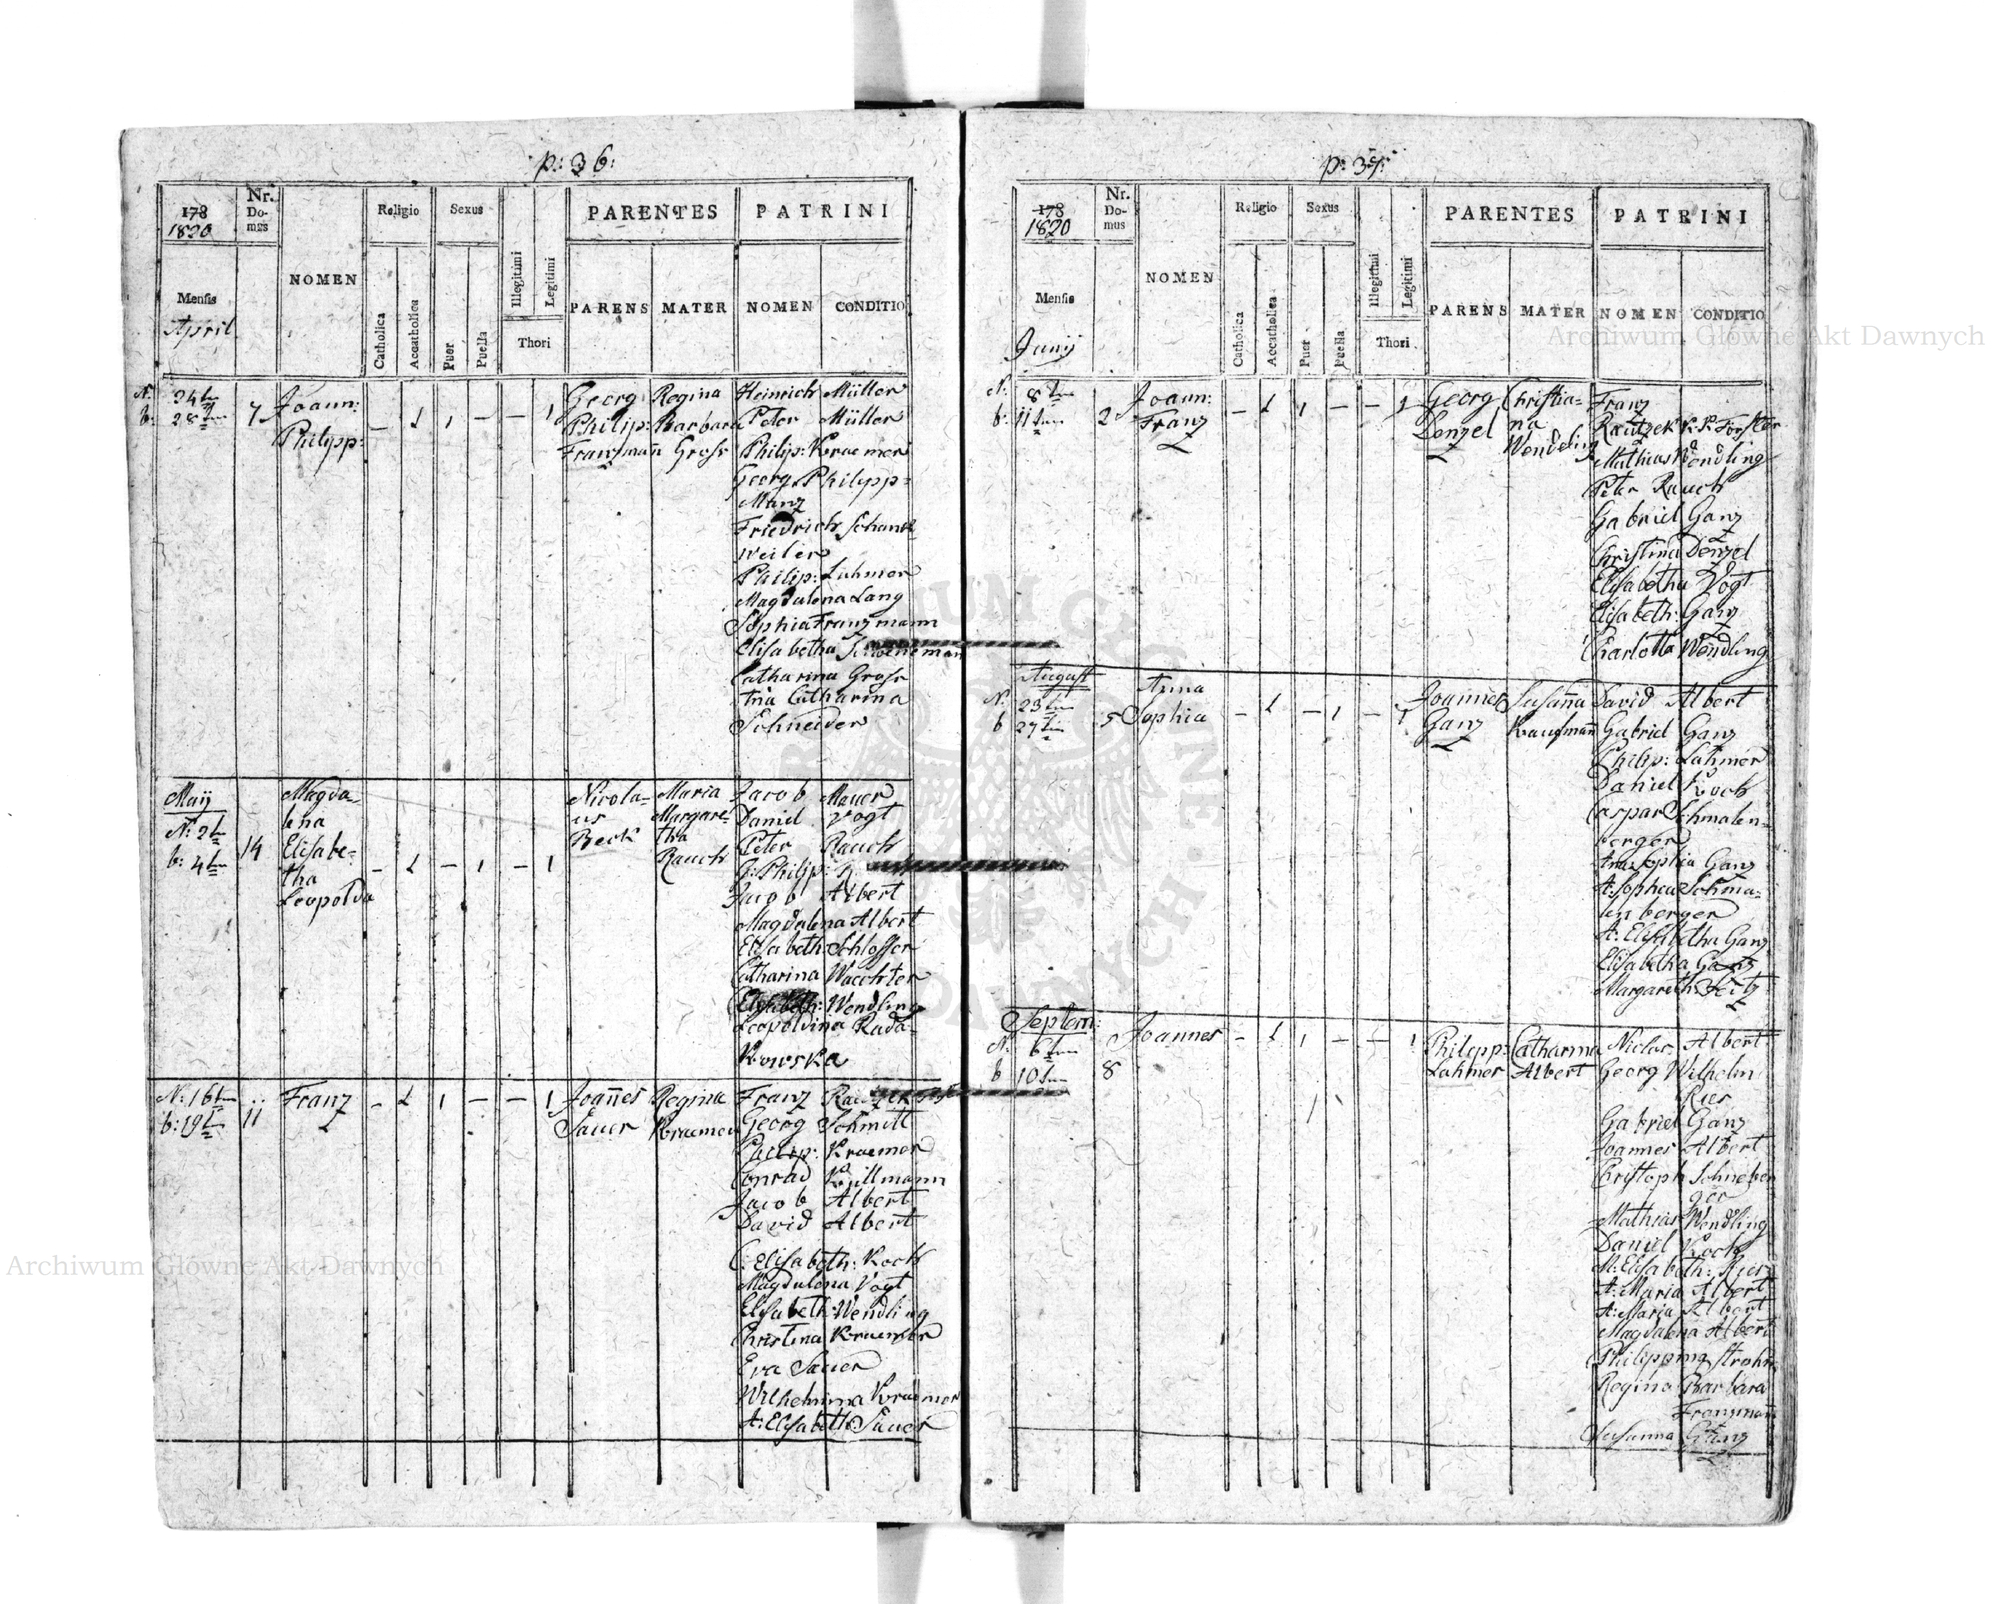 p: 36:
178
1820
Nr.
Do-
mus
NOMEN
Religio
Sexus
Illegitimi
Legitimi
PARENTES
PATRINI
Mensis
April
Catholica
Accatholica
Puer
Puella
Thori
PARENS
MATER
NOMEN
CONDITIO
N: 24ten
b: 28ten
7
Joann:
Philipp:
– 1 1 – – 1
Georg
Philip:
Franzmañ
Regina
Barbara
Gross
Heinrich Müller
Peter Müller
Philip: Kraemer
Georg Philipp
Manz
Friedrich Schank
weiler
Philip: Lahmer
Magdalena Lang
Sophia Franzmann
Elisabetha
Catharina Gross
Catharina
Schneider
Maij
N: 2ten
b: 4ten
14
Magda-
lena
Elisabe-
tha
Leopolda
– 1 – 1 – 1
Nicola-
us
Beck
Maria
Margare-
tha
Rauch
Jacob Mauer
Daniel Vogt
Peter Rauch
J: Philip:
Jacob Albert
Magdalena Albert
Elisabeth: Schlosser
Catharina Waechter
Elisabeth: Wendling
Leopoldina Rada-
kowska
N: 16ten
b: 19ten
11
Franz
– 1 1 – – 1
Joañes
Sauer
Regina
Kraemer
Franz
Georg Schmitt
Philip: Kraemer
Conrad Küllmann
Jacob Albert
David Albert
C: Elisabeth: Koch
Magdalena Vogt
Elisabeth: Wendling
Christina Kraemer
Eva Sauer
Wilhelmina Kraemer
A: Elisabeth: Sauer
p: 37:
178
1820
Nr.
Do-
mus
NOMEN
Religio
Sexus
Illegitimi
Legitimi
PARENTES
PATRINI
Mensis
Junij
Catholica
Accatholica
Puer
Puella
Thori
PARENS
MATER
NOMEN
CONDITIO
N: 8ten
b: 11ten
2
Joann:
Franz
– 1 1 – – 1
Georg
Denzel
Christia-
na
Wendeling
Franz
Rautzek K. K. Förster
Mathias Wendling
Peter Rauch
Gabriel Ganz
Christina Denzel
Elisabetha Vogt
Elisabeth: Ganz
Charlotta Wendling
August
N: 23ten
b 27ten
5
Anna
Sophia
– 1 – 1 – 1
Joannes
Ganz
Susaña
Kaufmañ
David Albert
Gabriel Ganz
Philip: Lahmer
Daniel Koch
Caspar Schmalen-
berger
Anna Sophia Ganz
A: Sophia Schma-
lenberger
A: Elisabetha Ganz
Elisabetha Ganz
Margareth: Seitz
Septem:
N: 6ten
b 10ten
8
Joannes
– 1 1 – – 1
Philipp:
Lahmer
Catharina
Albert
Niclas Albert
Georg Wilhelm
Ries
Gabriel Ganz
Joannes Albert
Christoph Schneber
ger
Mathias Wendling
Daniel Koch
M: Elisabeth: Ries
A: Maria Albert
A: Maria Albert
Magdalena Albert
Philippina Strohm
Regina Barbara
Franzmañ
Susanna Ganz
Archiwum Główne Akt Dawnych
Archiwum Główne Akt Dawnych
ARCHIWUM GŁÓWNE · AKT DAWNYCH ·